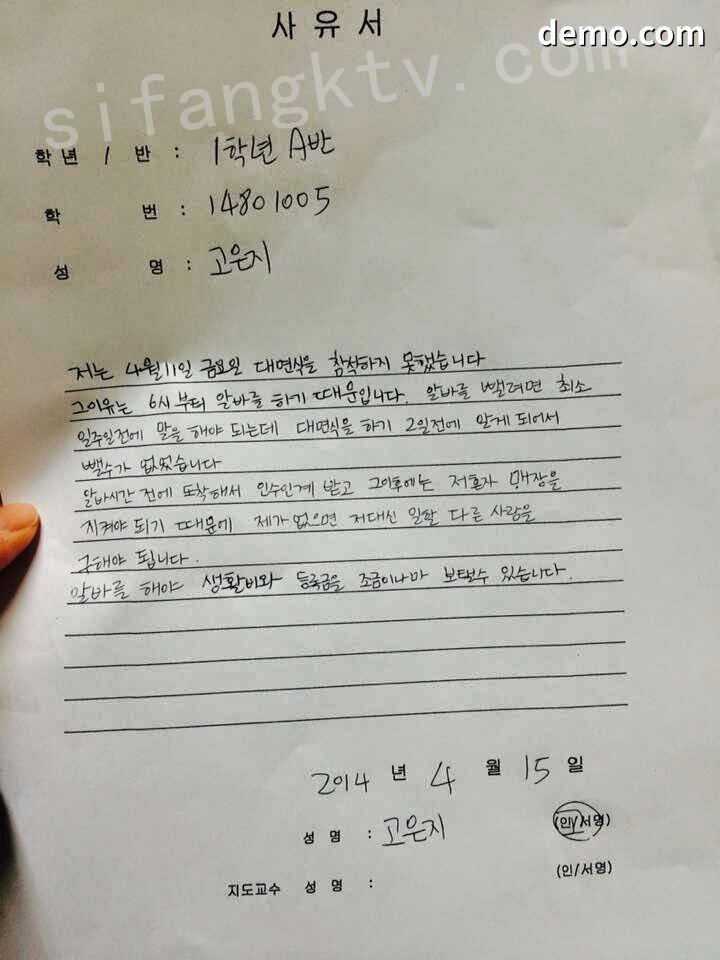 사 유 서
demo.com
sifangktv.com
학 년 / 반 : 1학년 A반
학 번 : 14801005
성 명 : 고은지
저는 4월11일 금요일 대면식을 참석하지 못했습니다
그이유는 6시 부터 알바를 하기 때문입니다. 알바를 뺄려면 최소
일주일전에 말을 해야 되는데 대면식을 하기 2일전에 알게 되어서
뺄수가 없었습니다
알바시간 전에 도착해서 인수인계 받고 그이후에는 저혼자 매장을
지켜야 되기 때문에 제가 없으면 저대신 일할 다른 사람을
구해야 됩니다.
알바를 해야 생활비와 등록금을 조금이나마 보탤수 있습니다.
2014 년 4 월 15 일
성 명 : 고은지 (인/서명)
지도교수 성 명 : (인/서명)